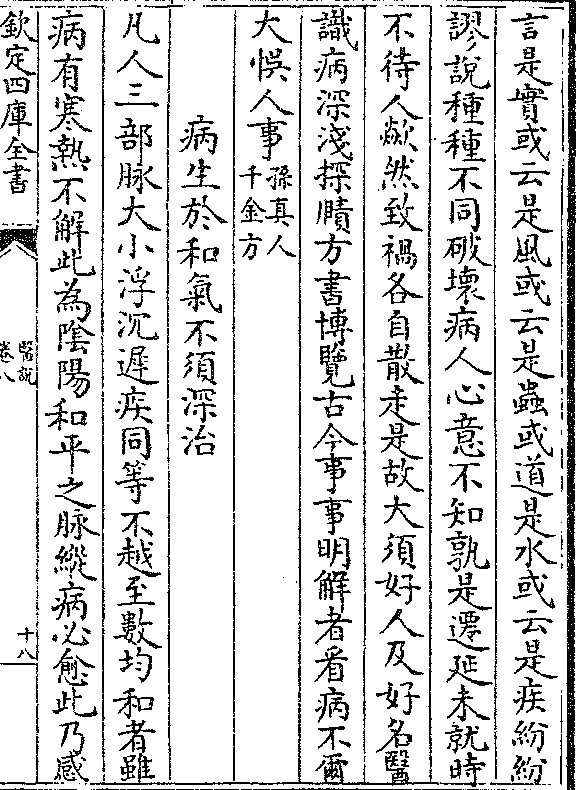 言是實或云是風或云是蟲或道是水或云是疾紛紛
謬說種種不同破壞病人心意不知孰是遷延未就時
不待人歘然致禍各自散走是故大須好人及好名醫
識病深淺探賾方書博覽古今事事明解者看病不爾
大悮人事孫真人
千金方
病生於和氣不須深治
凡人三部脉大小浮沉遲疾同等不越至數均和者雖
病有寒熱不解此為陰陽和平之脉縱病必愈此乃感
欽定四庫全書
醫說
卷八
十八